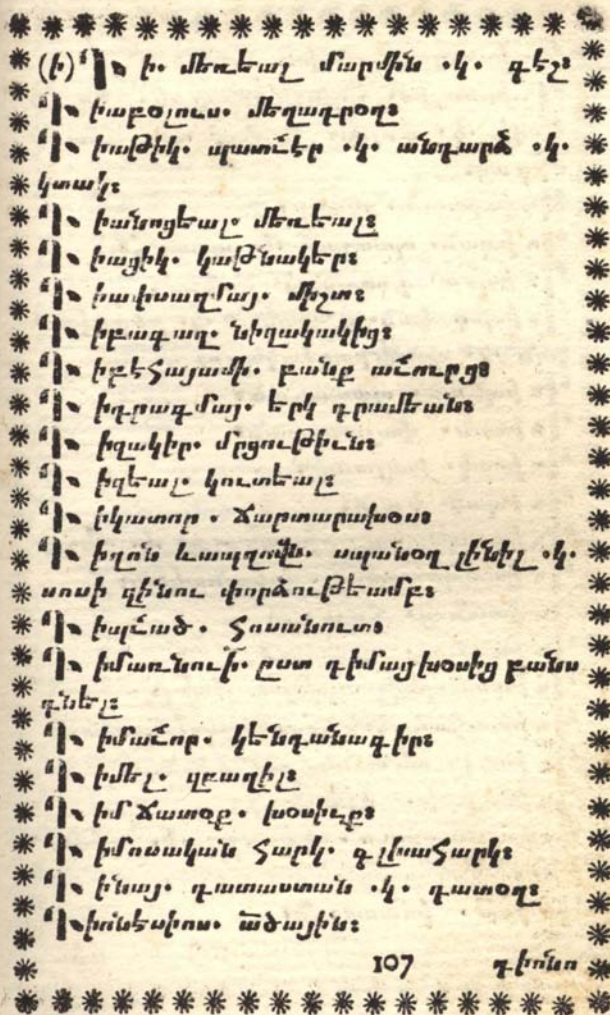 (ի) Դի. մեռեալ մարմին .կ. գէշ։
Դիաբօլուս. մեղադրօղ։
Դիաթիկ. պատճէր .կ. անդարձ .կ.
կտակ։
Դիանոցեալ. մեռեալ։
Դիացիկ. կաթնակեր։
Դիափսաղմայ. միշտ։
Դիբագաղ. նիզակակից։
Դիբէհայամի. բանք աւուրց։
Դիդրագմայ. երկ դրամեան։
Դիզակիր. մրցութիւն։
Դիզեալ. կուտեալ։
Դիկատոր. ճարտարախօս։
Դիղոն և ապղովն. սպանօղ լինիլ .կ.
սոսի զինու փորձութեամբ։
հոսանուտ։
Դիմառնուի. ըստ դիմաց խօսից բանս
դնել։
Դիմաւոր. կենդանագիր։
Դիմել. զբաղիլ։
խօսիւք։
Դիմոսական հարկ. գլխահարկ։
Դինայ. դատաստան .կ. դատօղ։
Դիոնէսիոս. ածային։
107 դիոնո